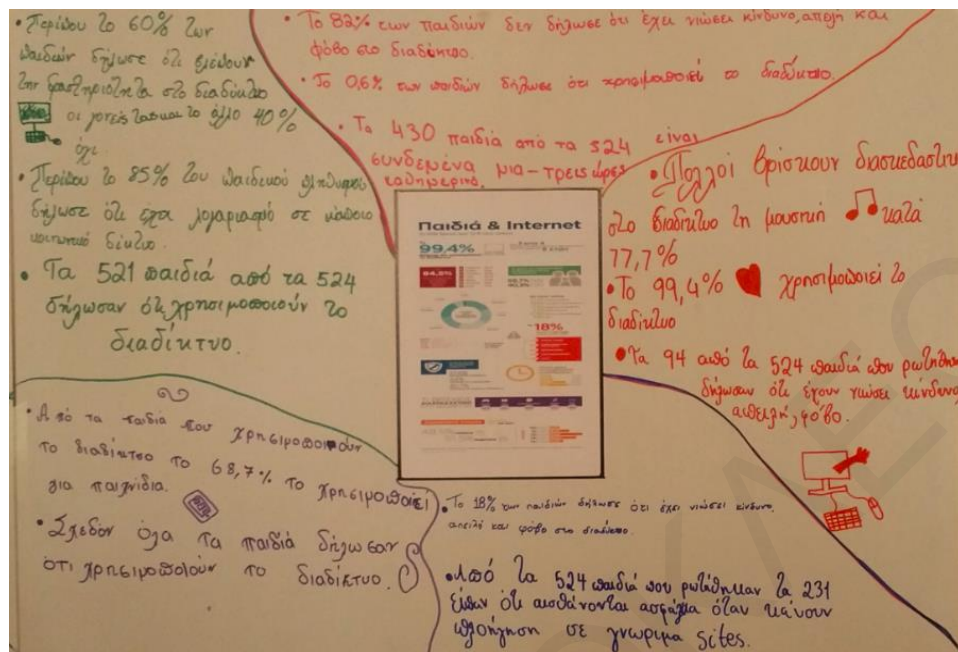 • Περίπου το 60% των
παιδιών δήλωσε ότι ελέγχουν
την δραστηριότητα στο διαδίκτυο
οι γονείς τους και το άλλο 40%
όχι.
• Περίπου το 85% του παιδικού πληθυσμού
δήλωσε ότι έχει λογαριασμό σε κάποιο
κοινωνικό δίκτυο.
• Τα 521 παιδιά από τα 524
δήλωσαν ότι χρησιμοποιούν το
διαδίκτυο.
• Το 82% των παιδιών δεν δήλωσε ότι έχει νιώσει κίνδυνο, απειλή και
φόβο στο διαδίκτυο.
• Το 0,6% των παιδιών δήλωσε ότι χρησιμοποιεί το διαδίκτυο.
• Τα 430 παιδιά από τα 524 είναι
συνδεμένα μια-τρεις ώρες
καθημερινά.
• Πολλοί βρίσκουν διασκεδαστικό
στο διαδίκτυο τη μουσική κατά
77,7%
• Το 99,4% χρησιμοποιεί το
διαδίκτυο
• Τα 94 από τα 524 παιδιά που ρωτήθηκαν
δήλωσαν ότι έχουν νιώσει κίνδυνο,
απειλή, φόβο.
Παιδιά & Internet
99,4%
94,5%
18%
• Από τα παιδιά που χρησιμοποιούν
το διαδίκτυο το 68,7% το χρησιμοποιεί
για παιχνίδια.
• Σχεδόν όλα τα παιδιά δήλωσαν
ότι χρησιμοποιούν το διαδίκτυο.
• Το 18% των παιδιών δήλωσε ότι έχει νιώσει κίνδυνο,
απειλή και φόβο στο διαδίκτυο.
• Από τα 524 παιδιά που ρωτήθηκαν τα 231
είπαν ότι αισθάνονται ασφάλεια όταν κάνουν
πλοήγηση σε γνώριμα sites.